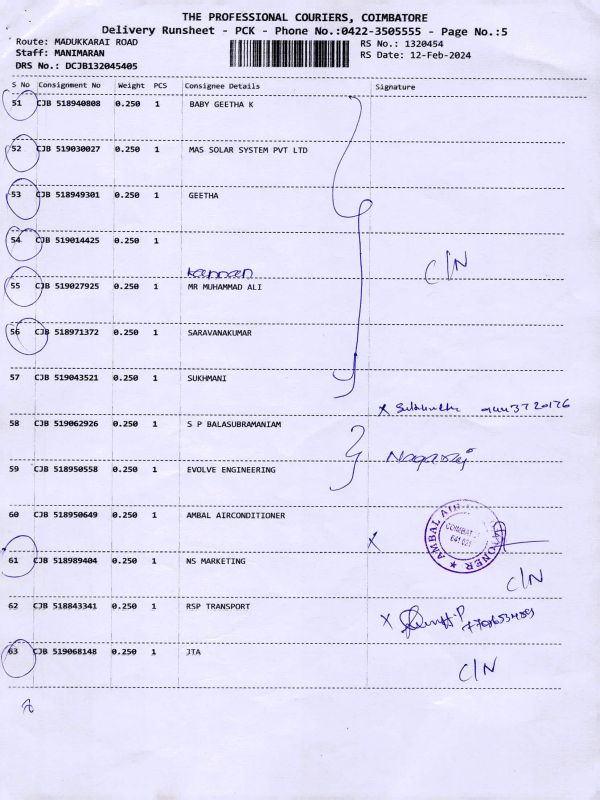 THE PROFESSIONAL COURIERS, COIMBATORE
Delivery Runsheet - PCK - Phone No.:0422-3505555 - Page No.:5
Route: MADUKKARAI ROAD RS No.: 1320454
Staff: MANIMARAN RS Date: 12-Feb-2024
DRS No.: DCJB132045405
S No Consignment No Weight PCS Consignee Details Signature
51 CJB 518940808 0.250 1 BABY GEETHA K
52 CJB 519030027 0.250 1 MAS SOLAR SYSTEM PVT LTD
53 CJB 518949301 0.250 1 GEETHA
54 CJB 519014425 0.250 1
C/N
kannan
55 CJB 519027925 0.250 1 MR MUHAMMAD ALI
56 CJB 518971372 0.250 1 SARAVANAKUMAR
57 CJB 519043521 0.250 1 SUKHMANI
x
58 CJB 519062926 0.250 1 S P BALASUBRAMANIAM
Nagaraj
59 CJB 518950558 0.250 1 EVOLVE ENGINEERING
60 CJB 518950649 0.250 1 AMBAL AIRCONDITIONER
x AMBAL AIR TIONER COIMBAT
61 CJB 518989404 0.250 1 NS MARKETING
C/N
62 CJB 518843341 0.250 1 RSP TRANSPORT x
63 CJB 519068148 0.250 1 JTA
C/N